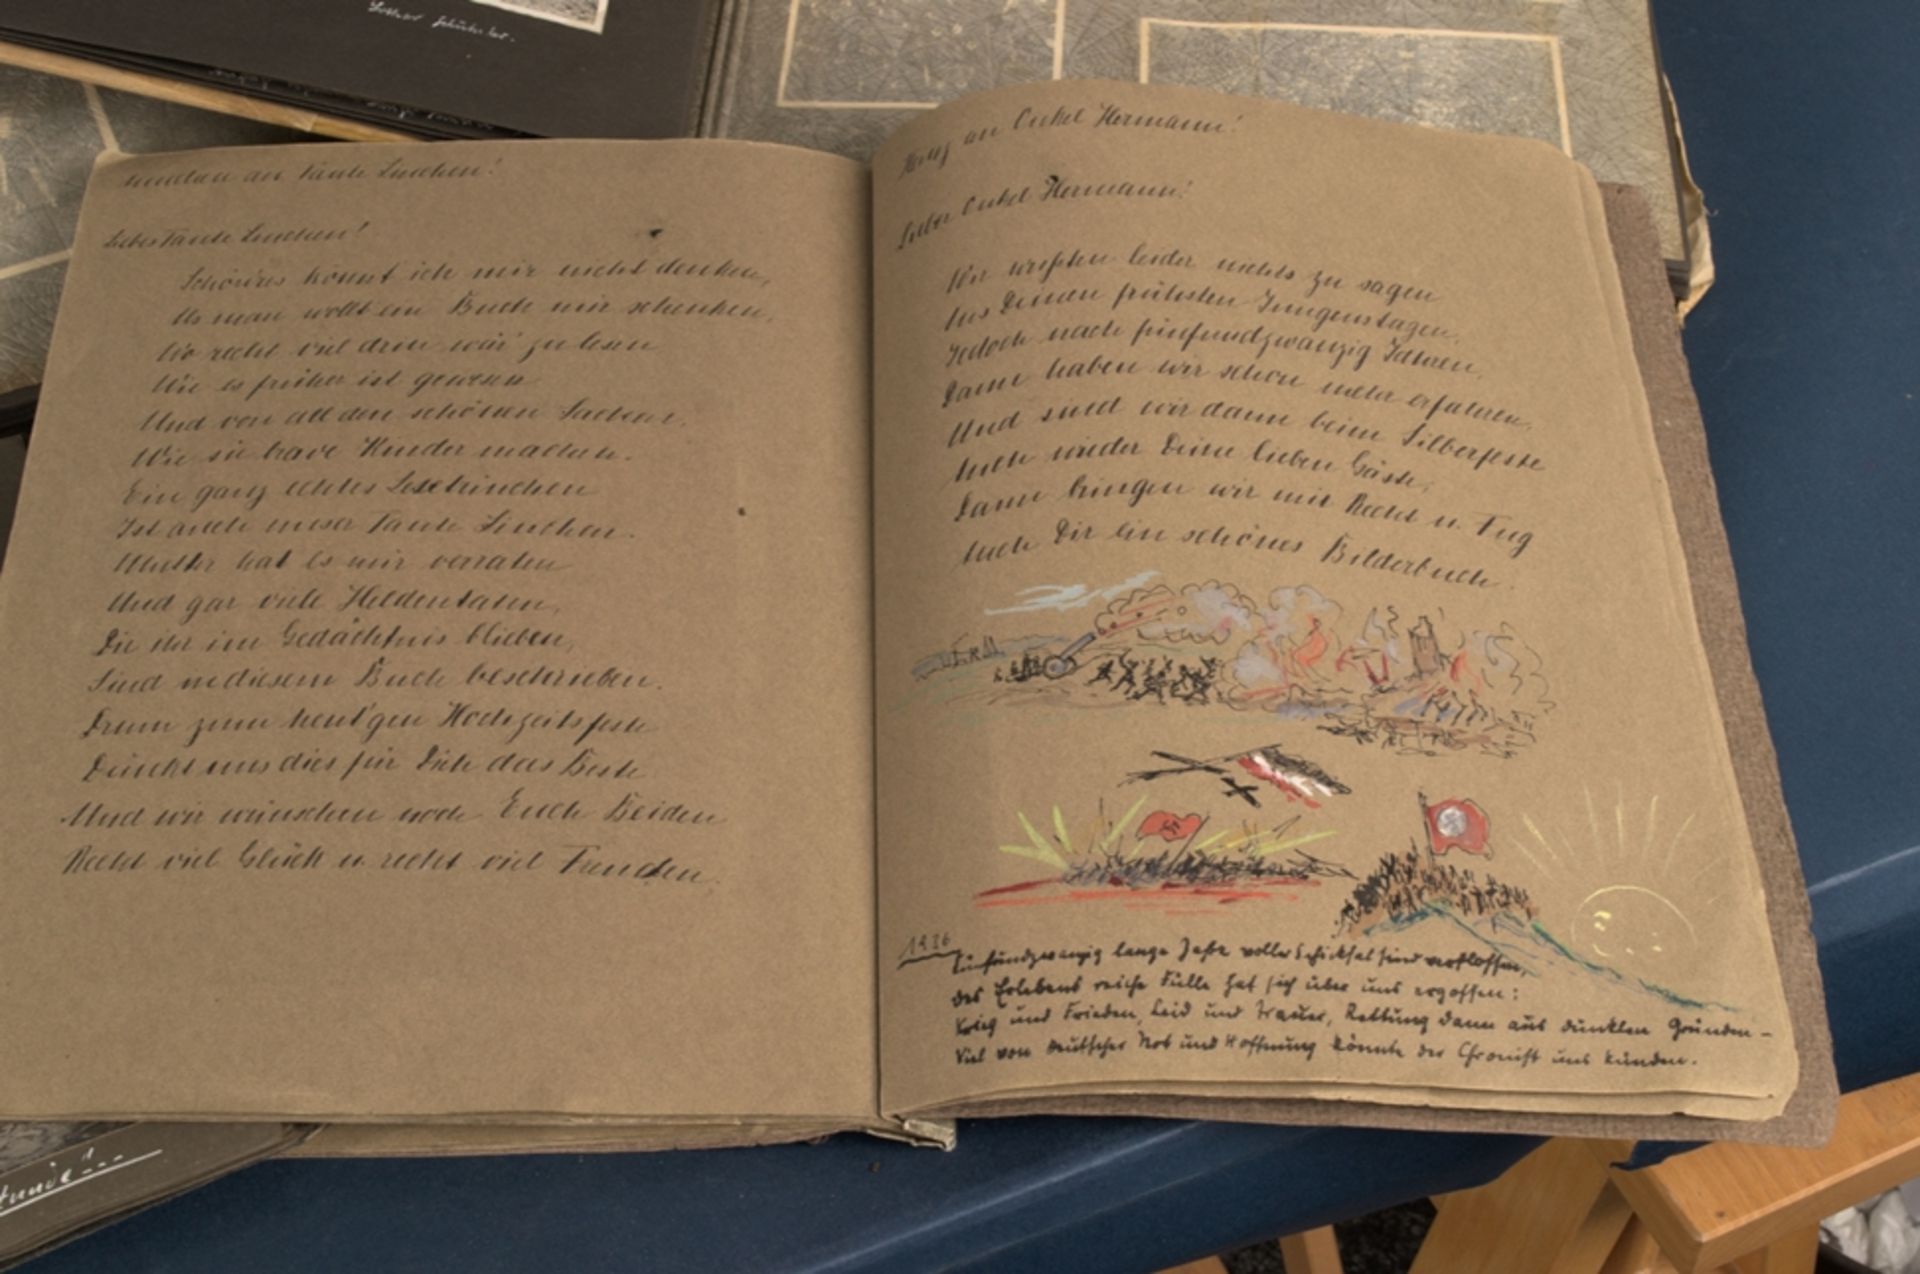 Lothar
an Tante Linchen!
Liebe Tante Linchen!
Schön'res könnt ich mir nicht denken,
Als man wollt ein Buch mir schenken,
Wo recht viel drin wär' zu lesen
Wie es früher ist gewesen
Und von all den schönen Sachen,
Wie sie brave Kinder machen.
Ein ganz echtes Lesekinchen
Ist auch unser Tante Linchen.
Mutter hat es mir verraten
Und gar viele Heldentaten,
Die ihr im Gedächtnis blieben,
Sind in diesem Buch beschrieben.
Drum zum heut'gen Hochzeitsfeste
Deucht uns dies für Dich das Beste
Und wir wünschen noch Euch Beiden
Recht viel Glück u. recht viel Freuden.
an Onkel Hermann!
Lieber Onkel Hermann!
Wir wußten leider nichts zu sagen
Aus Deinen frühsten Jungenstagen,
Jedoch nach fünfundzwanzig Jahren,
Dann haben wir schon mehr erfahren,
Und sind wir dann beim Silberfeste
Auch wieder Deine lieben Gäste,
Dann bringen wir mit Recht u. Fug
Auch Dir ein schönes Bilderbuch.
1936
Fünfundzwanzig lange Jahre voller Schicksal sind verflossen,
des Erlebens reiche Fülle hat sich über uns ergossen:
Krieg und Frieden, Leid und Trauer, Rettung dann aus dunklen Gründen –
Viel von deutscher Not und Hoffnung könnte der Chronist uns künden.